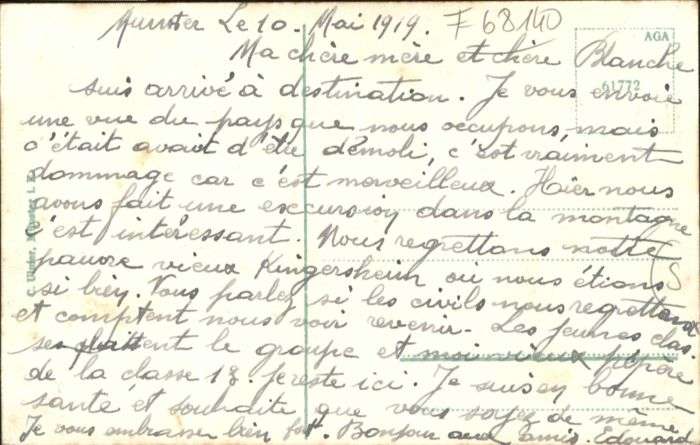 Munster Le 10. Mai 1919. F 68140
Ma chère mère et chère Blanche
AGA
61772
suis arrivé à destination. Je vous envoie
une vue du pays que nous occupons, mais
c'était avait d'être démoli, c'est vraiment
dommage car c'est merveilleux. Hier nous
avons fait une excursion dans la montagne
c'est intéressant. Nous regrettons notre
pauvre vieux Kingersheim où nous étions
si bien. Vous parlez si les civils nous regrettent
et comptent nous voir revenir - Les jeunes clas.
se plaitent le groupe et moi vieux pépère
de la classe 18. je reste ici. Je suis en bonne
santé et souhaite que vous soyez de même
Je vous embrasse bien fort. Bonjour aux amis. Edouard